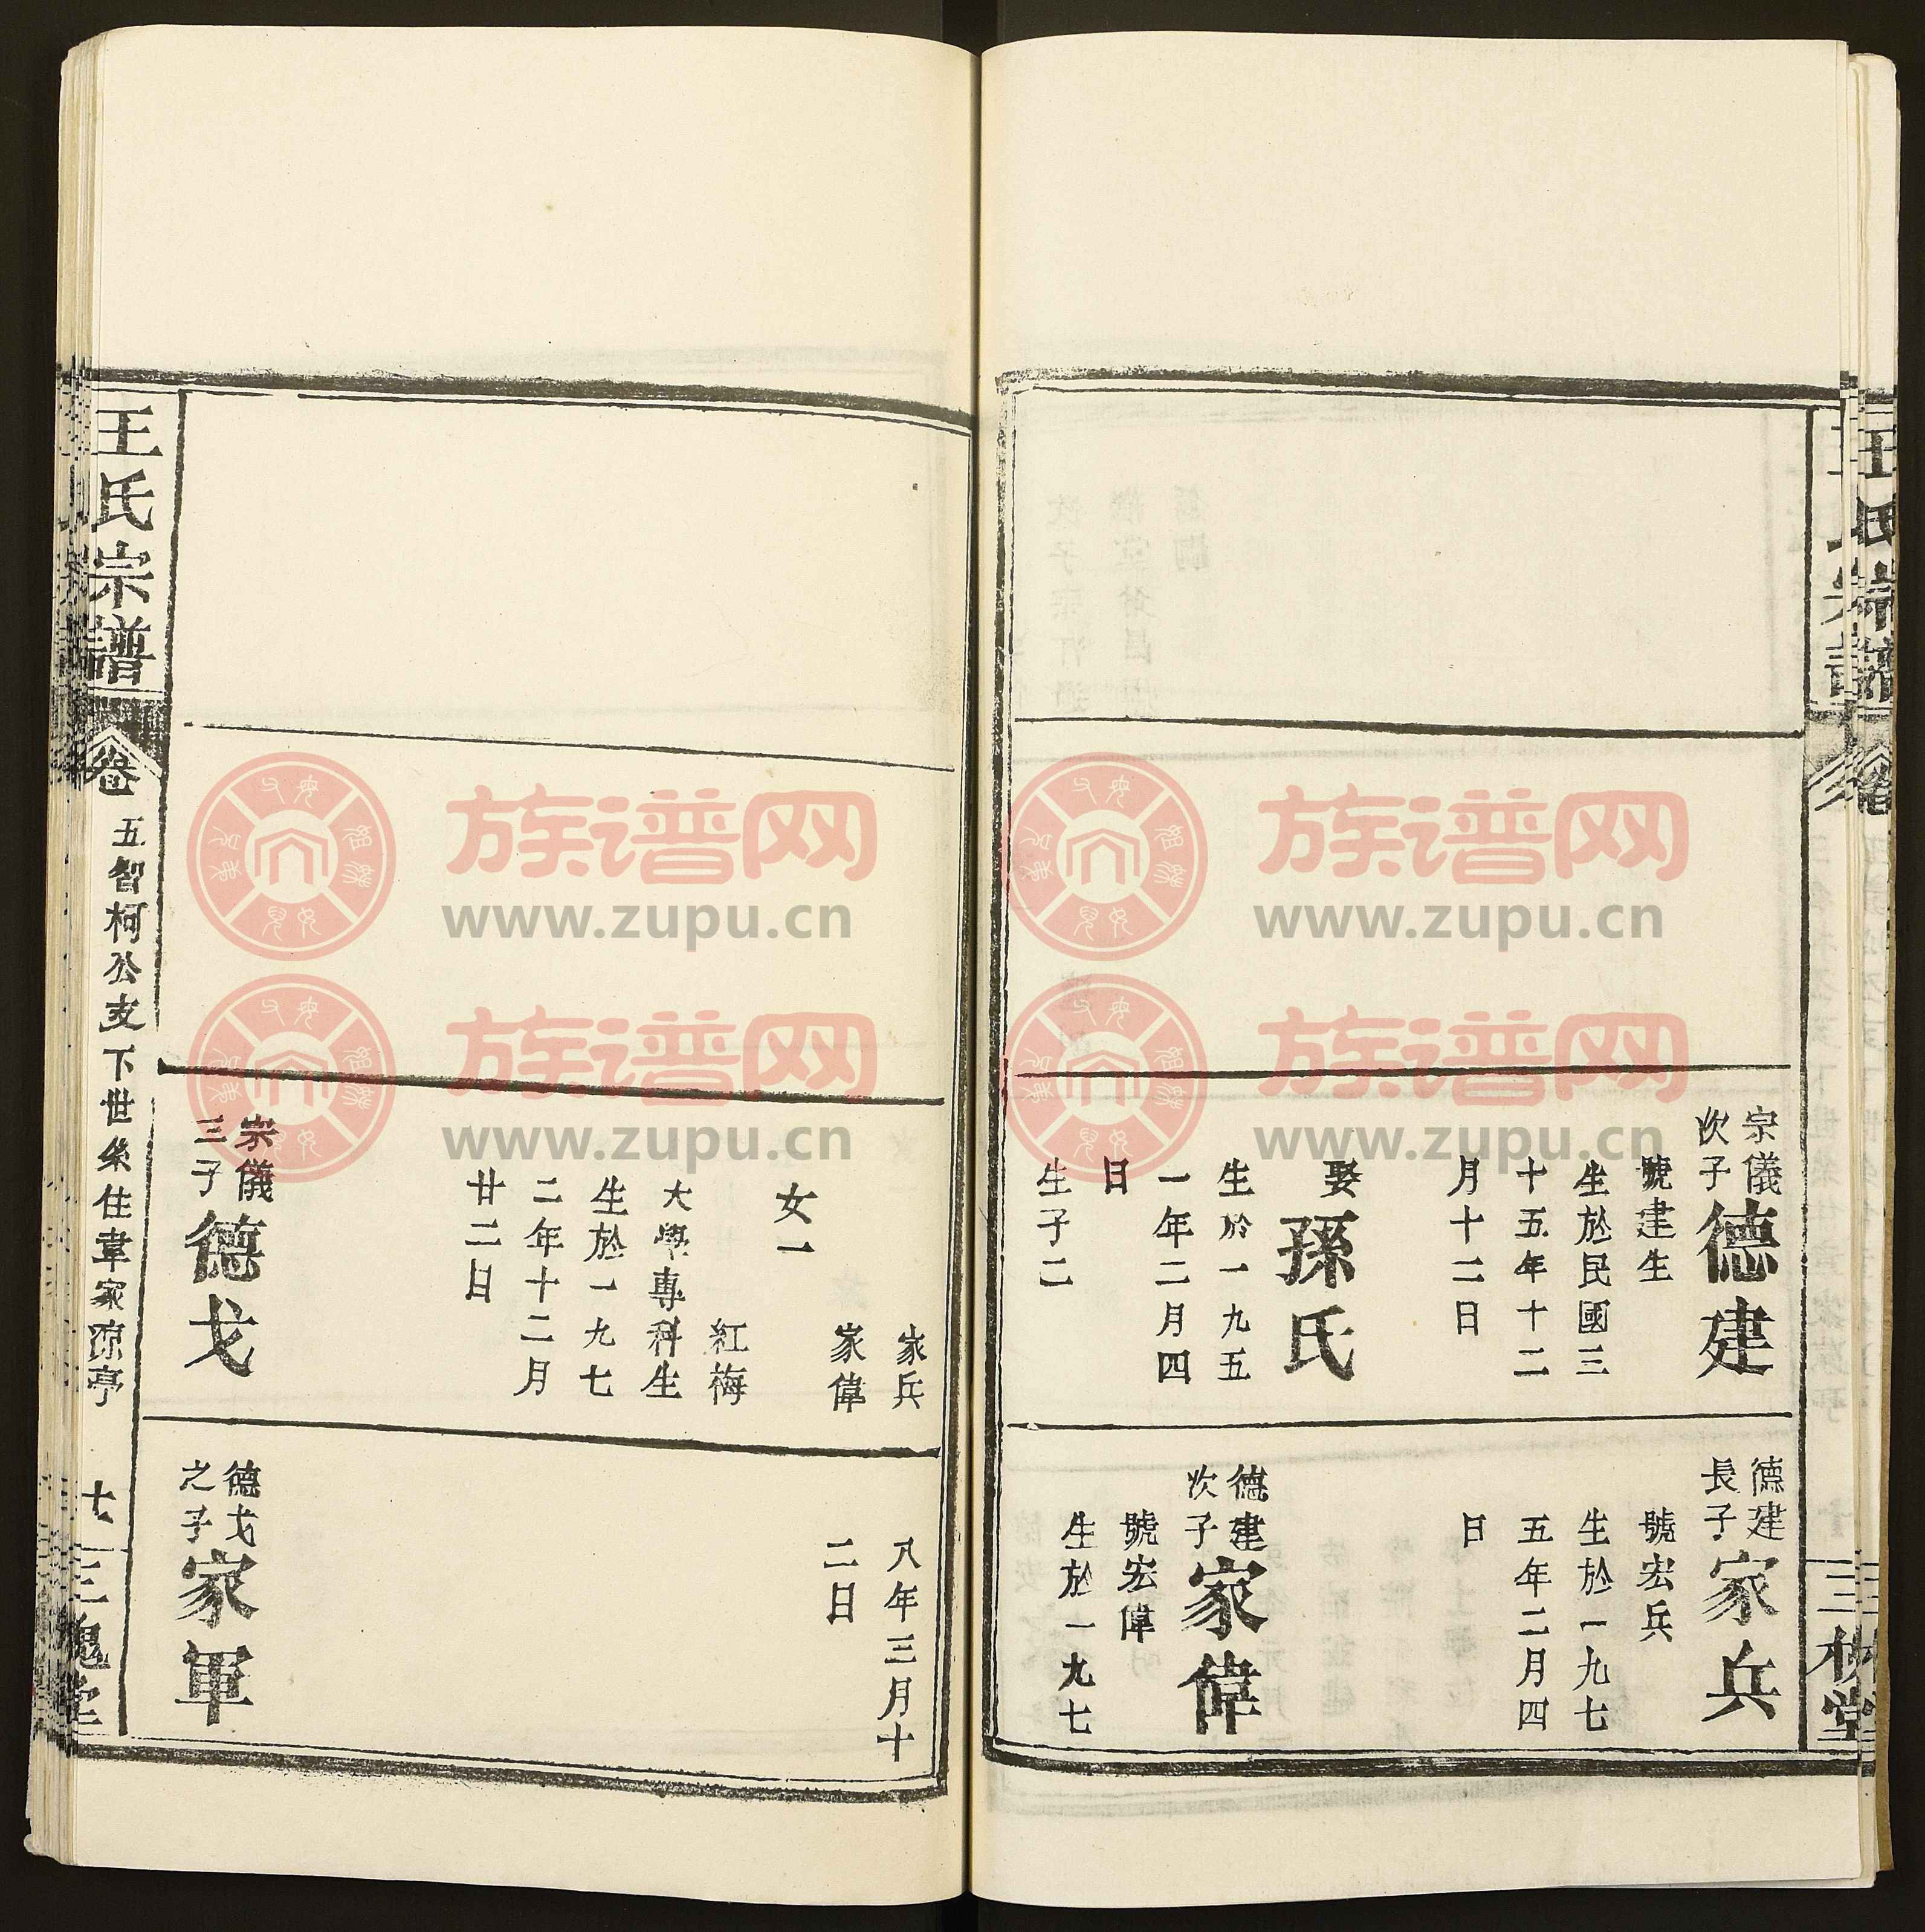 宗儀
次子
德建
號建生
生於民國三
十五年十二
月十二日
娶
孫氏
生於一九五
一年二月四
日
生子二
德建
長子
家兵
號宏兵
生於一九七
五年二月四
日
德建
次子
家偉
號宏偉
生於一九七
家兵
家偉
女一
紅梅
大學專科生
生於一九七
二年十二月
廿二日
宗儀
三子
德戈
八年三月十
二日
德戈
之子
家軍
王氏宗譜
卷
五智柯公支下世系住韋家涼亭
三槐堂
王氏宗譜
卷
三槐堂
族谱网
www.zupu.cn
族谱网
www.zupu.cn
族谱网
www.zupu.cn
族谱网
www.zupu.cn